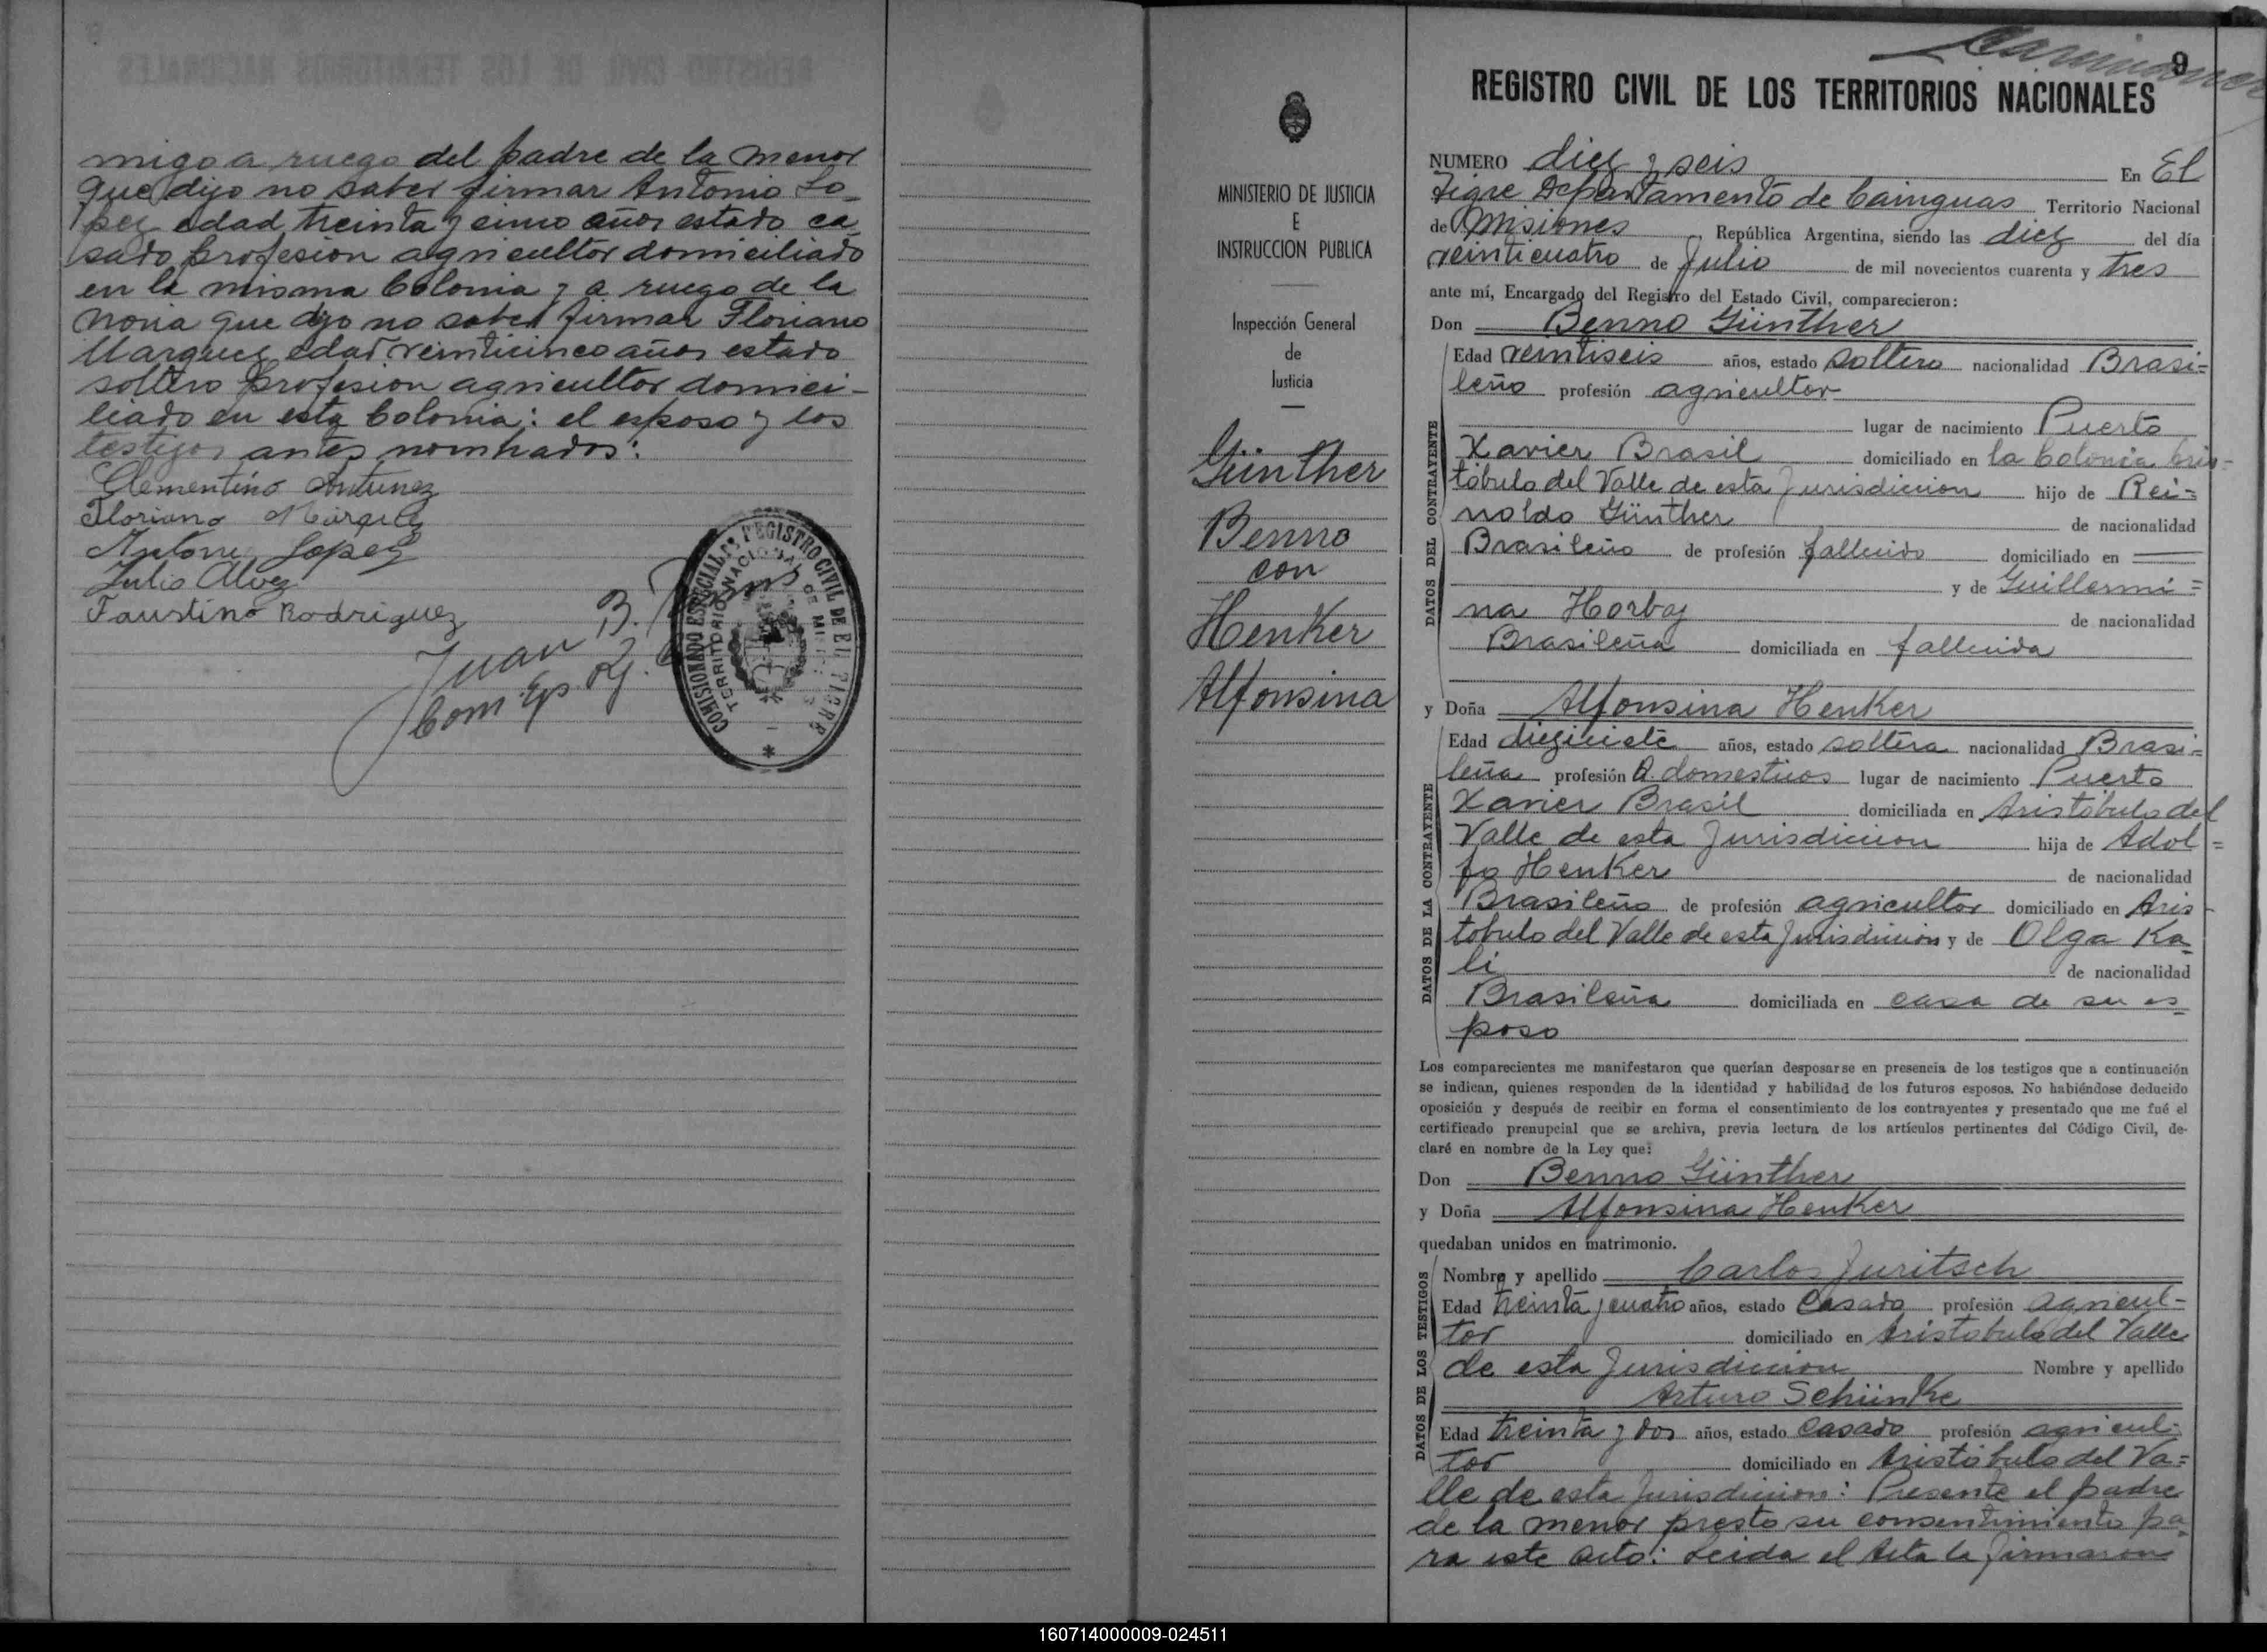 migo a ruego del padre de la menor
que dijo no saber firmar Antonio Lo-
pez edad treinta y cinco años estado ca-
sado profesion agricultor domiciliado
en la misma Colonia y a ruego de la
novia que dijo no saber firmar Floriano
Marquez edad veinticinco años estado
soltero profesion agricultor domici-
liado en esta Colonia: el esposo y los
testigos antes nombrados:
Clementino Antunez
Floriano Márquez
Antonio Lopez
Julio Alvez
Faustino Rodriguez
Juan B.
Com. Esp.
COMISIONADO ESPECIAL DEL REGISTRO CIVIL DE EL TIGRE
TERRITORIO NACIONAL DE MISIONES
MINISTERIO DE JUSTICIA
E
INSTRUCCION PUBLICA
Inspección General
de
Justicia
Günther
Benno
con
Henker
Alfonsina
9
REGISTRO CIVIL DE LOS TERRITORIOS NACIONALES
NUMERO diez y seis En El
Tigre Departamento de Cainguas Territorio Nacional
de Misiones, República Argentina, siendo las diez del día
veinticuatro de Julio de mil novecientos cuarenta y tres
ante mí, Encargado del Registro del Estado Civil, comparecieron:
Don Benno Günther
DATOS DEL CONTRAYENTE
Edad veintiseis años, estado soltero nacionalidad Brasi=
leño profesión agricultor
lugar de nacimiento Puerto
Xavier Brasil domiciliado en la Colonia Aris=
tóbulo del Valle de esta Jurisdiccion hijo de Rei=
noldo Günther de nacionalidad
Brasileño de profesión fallecido domiciliado en
y de Guillermi=
na Horbag de nacionalidad
Brasileña domiciliada en fallecida
y Doña Alfonsina Henker
DATOS DE LA CONTRAYENTE
Edad diezisiete años, estado soltera nacionalidad Brasi=
leña profesión Q. domesticos lugar de nacimiento Puerto
Xavier Brasil domiciliada en Aristóbulo del
Valle de esta Jurisdiccion hija de Adol=
fo Henker de nacionalidad
Brasileño de profesión agricultor domiciliado en Aris-
tobulo del Valle de esta Jurisdiccion y de Olga Ka-
li de nacionalidad
Brasileña domiciliada en casa de su es-
poso
Los comparecientes me manifestaron que querían desposarse en presencia de los testigos que a continuación
se indican, quienes responden de la identidad y habilidad de los futuros esposos. No habiéndose deducido
oposición y después de recibir en forma el consentimiento de los contrayentes y presentado que me fué el
certificado prenupcial que se archiva, previa lectura de los artículos pertinentes del Código Civil, de-
claré en nombre de la Ley que:
Don Benno Günther
y Doña Alfonsina Henker
quedaban unidos en matrimonio.
DATOS DE LOS TESTIGOS
Nombre y apellido Carlos Juritsch
Edad treinta y cuatro años, estado Casado profesión agricul-
tor domiciliado en Aristobulo del Valle
de esta Jurisdiccion Nombre y apellido
Arturo Schünke
Edad treinta y dos años, estado Casado profesión agricul-
tor domiciliado en Aristóbulo del Va=
lle de esta Jurisdiccion: Presente el padre
de la menor presto su consentimiento pa-
ra este acto: Leida el Acta la firmaron
160714000009-024511